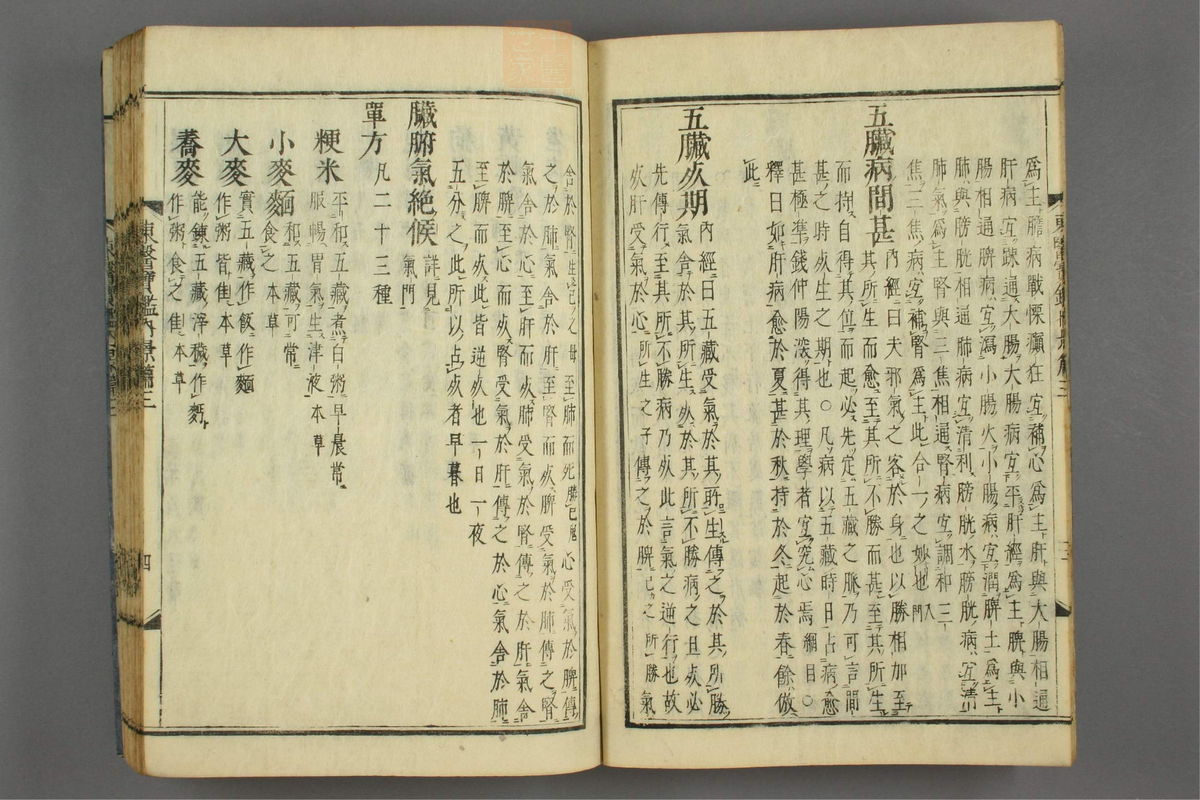 爲主膽病戰慄癲狂宜補心爲主肝與大腸相通
肝病宜踈通大腸大腸病宜平肝經爲主脾與小
腸相通脾病宜瀉小腸火小腸病宜潤脾土爲主
肺與膀胱相通肺病宜清利膀胱水膀胱病宜清
肺氣爲主腎與三焦相通腎病宜調和三
焦三焦病宜補腎爲主此合一之妙也入門
五臟病間甚
內經曰夫邪氣之客於身也以勝相加至
其所生而愈至其所不勝而甚至其所生
而持自得其位而起必先定五藏之脉乃可言間
甚之時死生之期也○凡病以五藏時日占病愈
甚極準錢仲陽深得其理學者宜究心焉綱目○
釋曰如肝病愈於夏甚於秋持於冬起於春餘倣
此
五臟死期
內經曰五藏受氣於其所生傳之於其所勝
氣舍於其所生死於其所不勝病之且死必
先傳行至其所不勝病乃死此言氣之逆行也故
死肝受氣於心所生之子傳之於脾己之所勝氣
舍於腎生己之母至肺而死勝己鬼心受氣於脾傳
之於肺氣舍於肝至腎而死脾受氣於肺傳之腎
氣舍於心至肝而死肺受氣於腎傳之於肝氣舍
於脾至心而死腎受氣於肝傳之於心氣舍於肺
至脾而死此皆逆死也一日一夜
五分之此所以占死者早暮也
臟腑氣絶候詳見氣門
單方凡二十三種
粳米平和五藏煮白粥早晨常
服暢胃氣生津液本草
小麥麵和五藏可常
食之本草
大麥實五藏作飯作麵
作粥皆佳本草
蕎麥能鍊五藏滓穢作麵
作粥食之佳本草
東醫寶鑑內景篇三
四